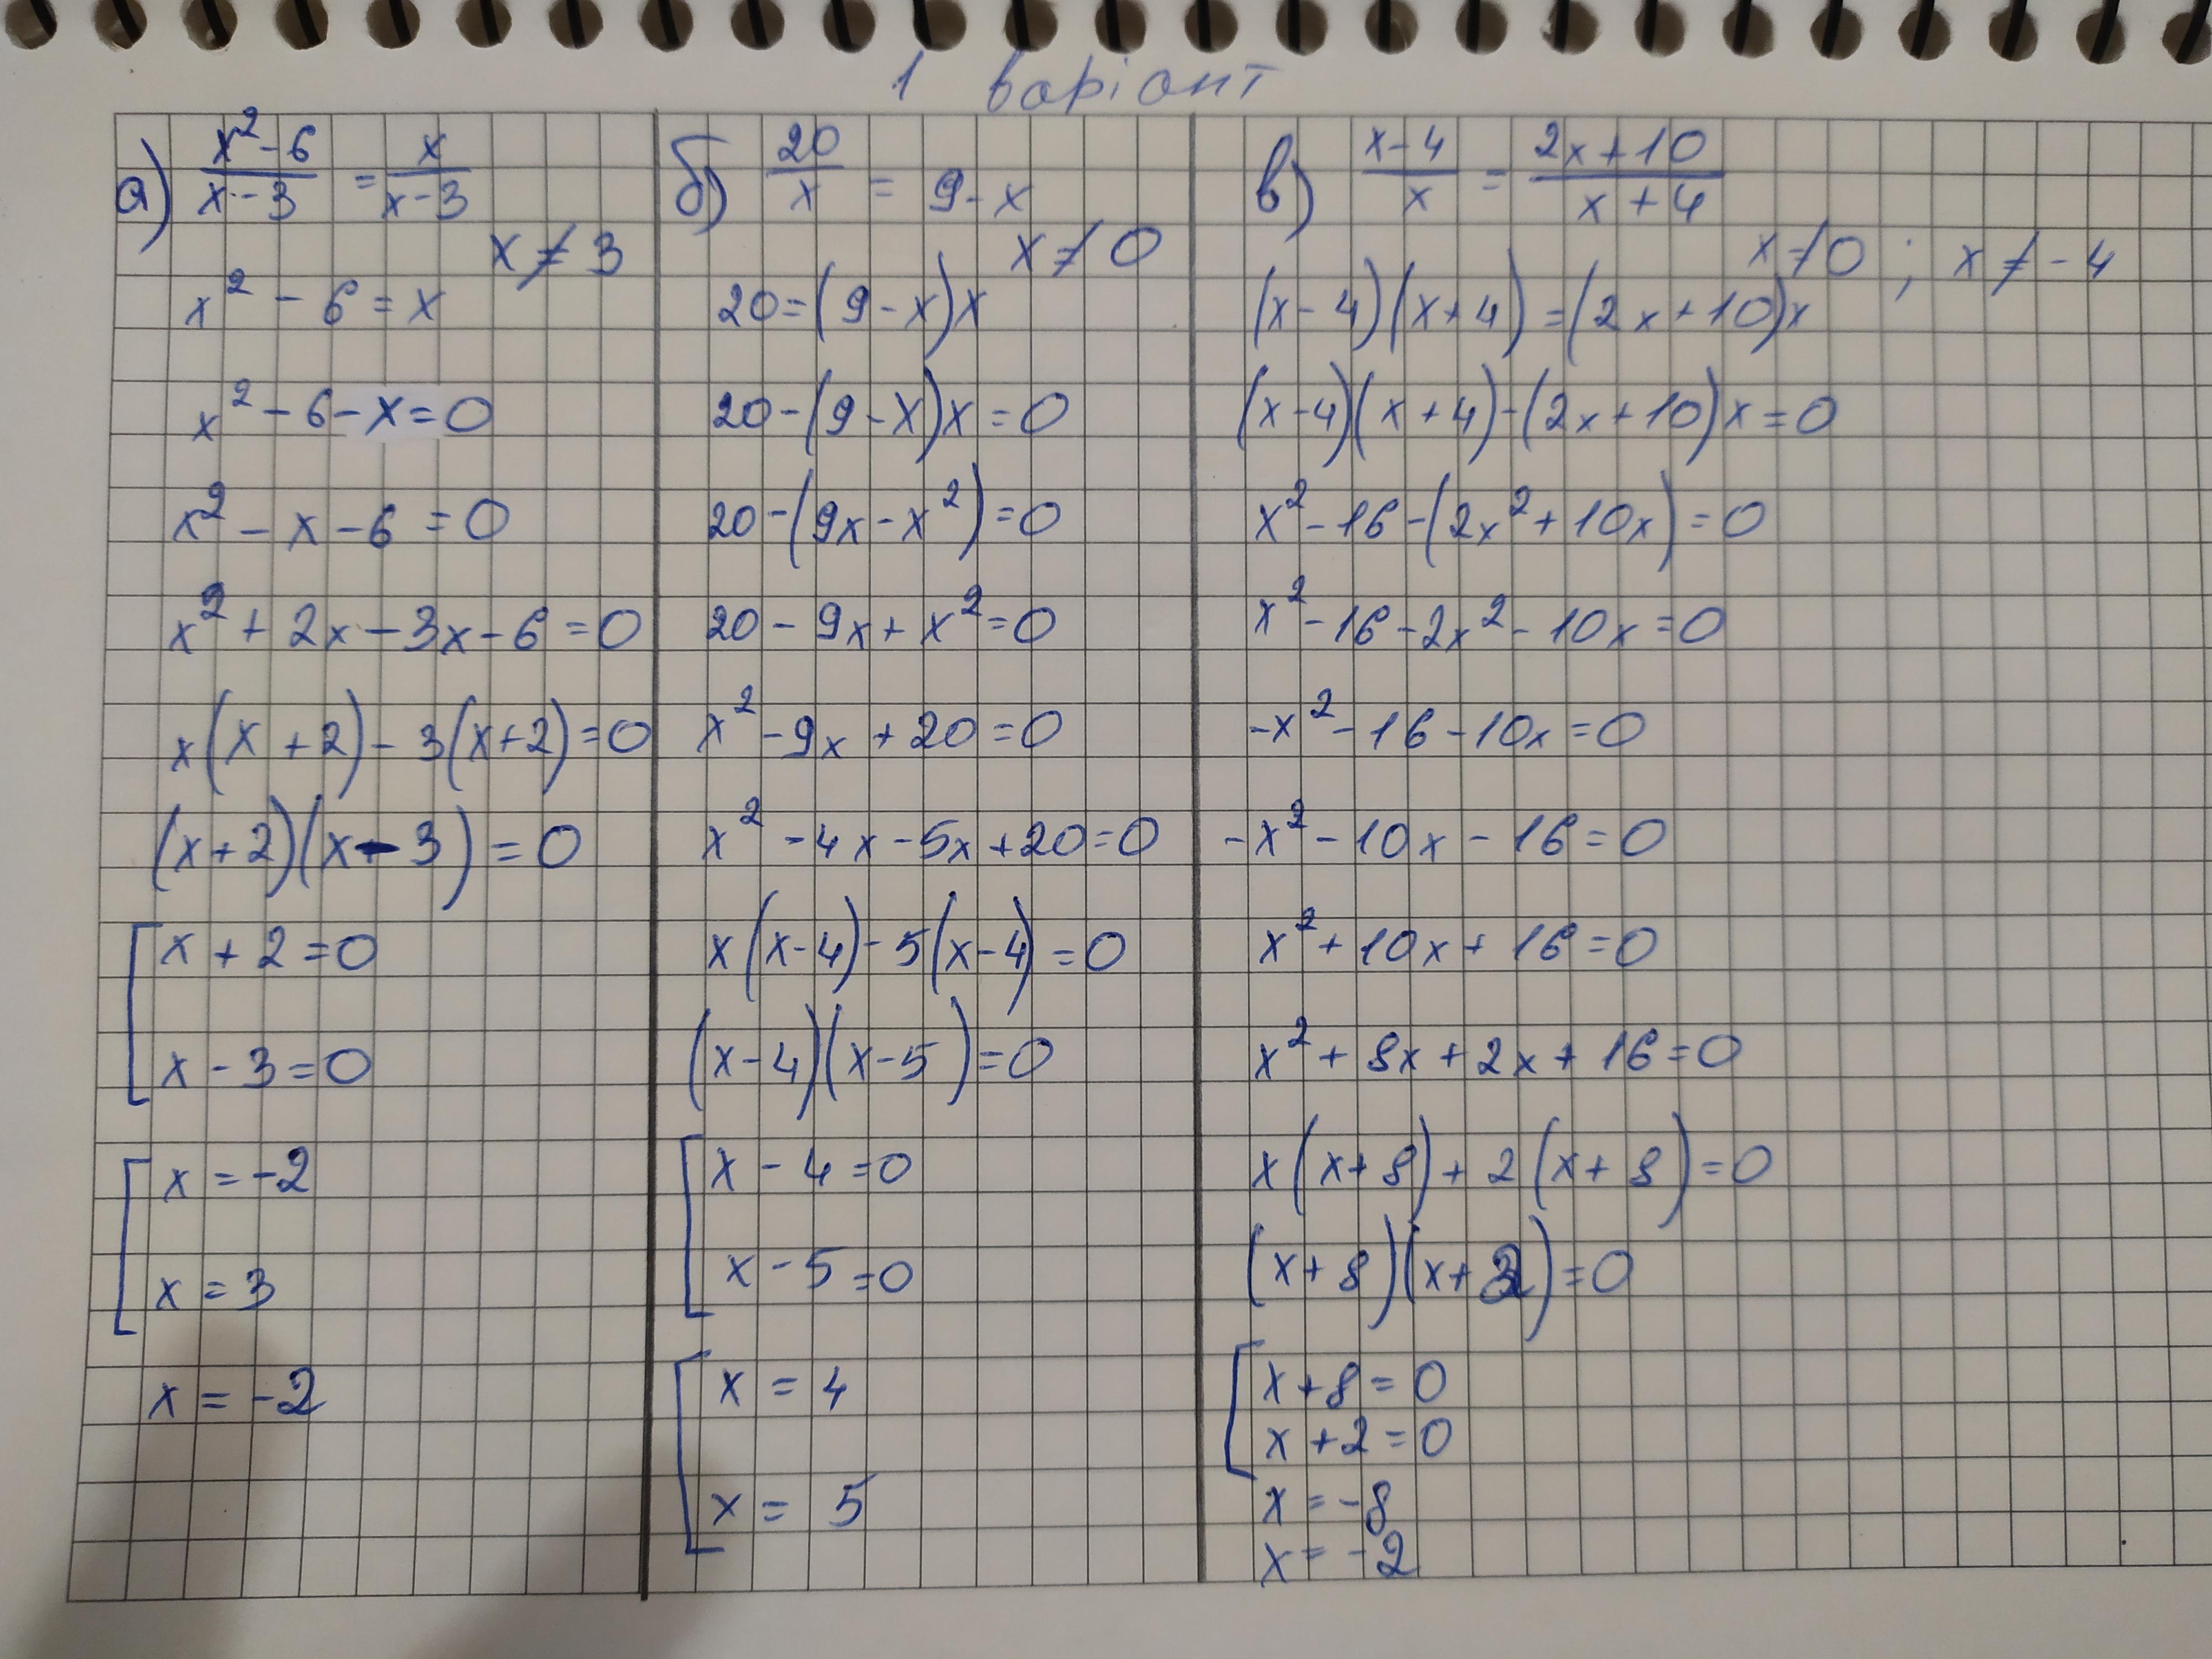 1 варіант
а) (x² - 6)/(x - 3) = x/(x - 3)
x ≠ 3
x² - 6 = x
x² - 6 - x = 0
x² - x - 6 = 0
x² + 2x - 3x - 6 = 0
x(x + 2) - 3(x + 2) = 0
(x + 2)(x - 3) = 0
[ x + 2 = 0
x - 3 = 0
[ x = -2
x = 3
x = -2
б) 20/x = 9 - x
x ≠ 0
20 = (9 - x)x
20 - (9 - x)x = 0
20 - (9x - x²) = 0
20 - 9x + x² = 0
x² - 9x + 20 = 0
x² - 4x - 5x + 20 = 0
x(x - 4) - 5(x - 4) = 0
(x - 4)(x - 5) = 0
[ x - 4 = 0
x - 5 = 0
[ x = 4
x = 5
в) (x - 4)/x = (2x + 10)/(x + 4)
x ≠ 0 ; x ≠ -4
(x - 4)(x + 4) = (2x + 10)x
(x - 4)(x + 4) - (2x + 10)x = 0
x² - 16 - (2x² + 10x) = 0
x² - 16 - 2x² - 10x = 0
-x² - 16 - 10x = 0
-x² - 10x - 16 = 0
x² + 10x + 16 = 0
x² + 8x + 2x + 16 = 0
x(x + 8) + 2(x + 8) = 0
(x + 8)(x + 2) = 0
[ x + 8 = 0
x + 2 = 0
x = -8
x = -2